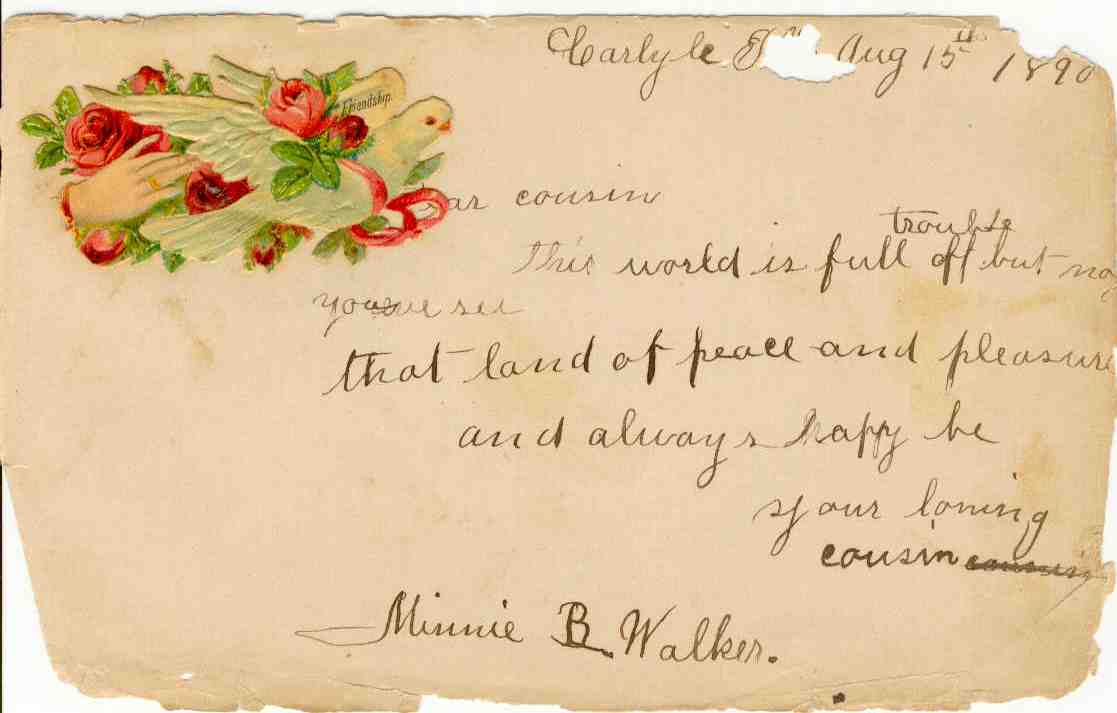 Carlyle Aug 15th 1890
Friendship.
ar cousin
trouble
This world is full off but
you see
that land of peace and pleasure
and always happy be
your loving
cousin
Minnie B. Walker.